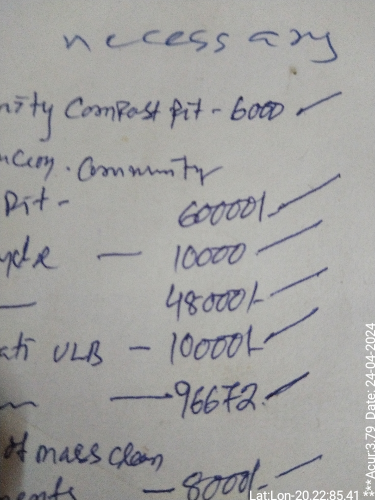 necessary
nity Compost Pit - 6000
Community
Pit -
60000/-
10000
48000/-
ati ULB - 10000/-
96672.
of mass clean
ments - 8000/-
Lat:Lon-20.22:85.41 ***Acur:3.79 Date: 24-04-2024